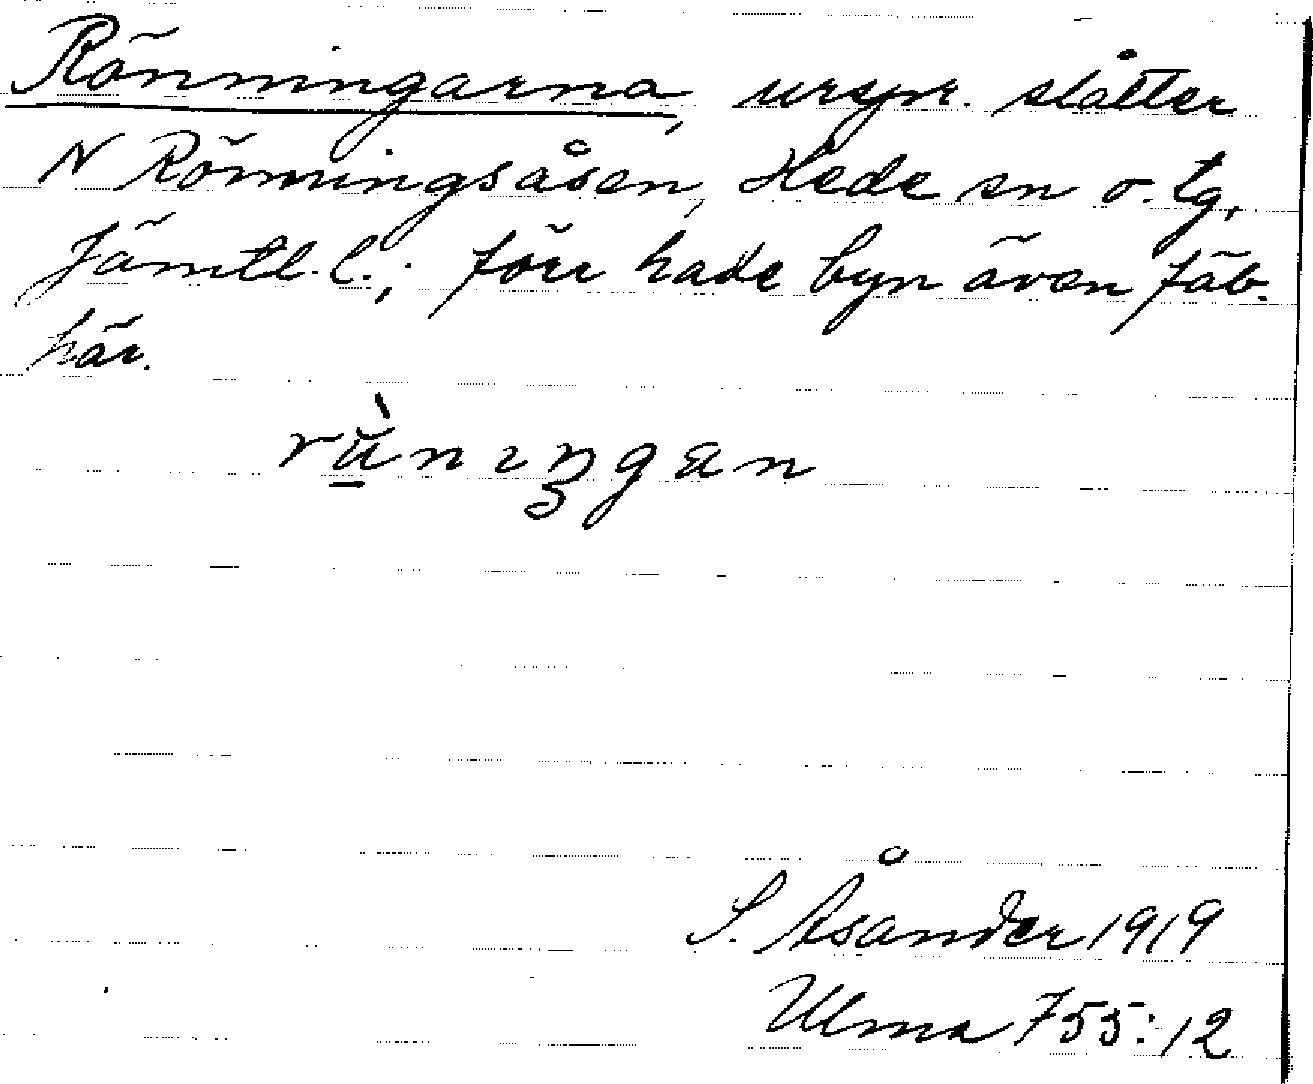 Rönningarna, urspr. slåtter
N Rönningsåsen, Hede sn o. tg,
Jämtl. l.; förr hade byn även fäb.
här.
S. Åsander 1919
Ulma 755:12